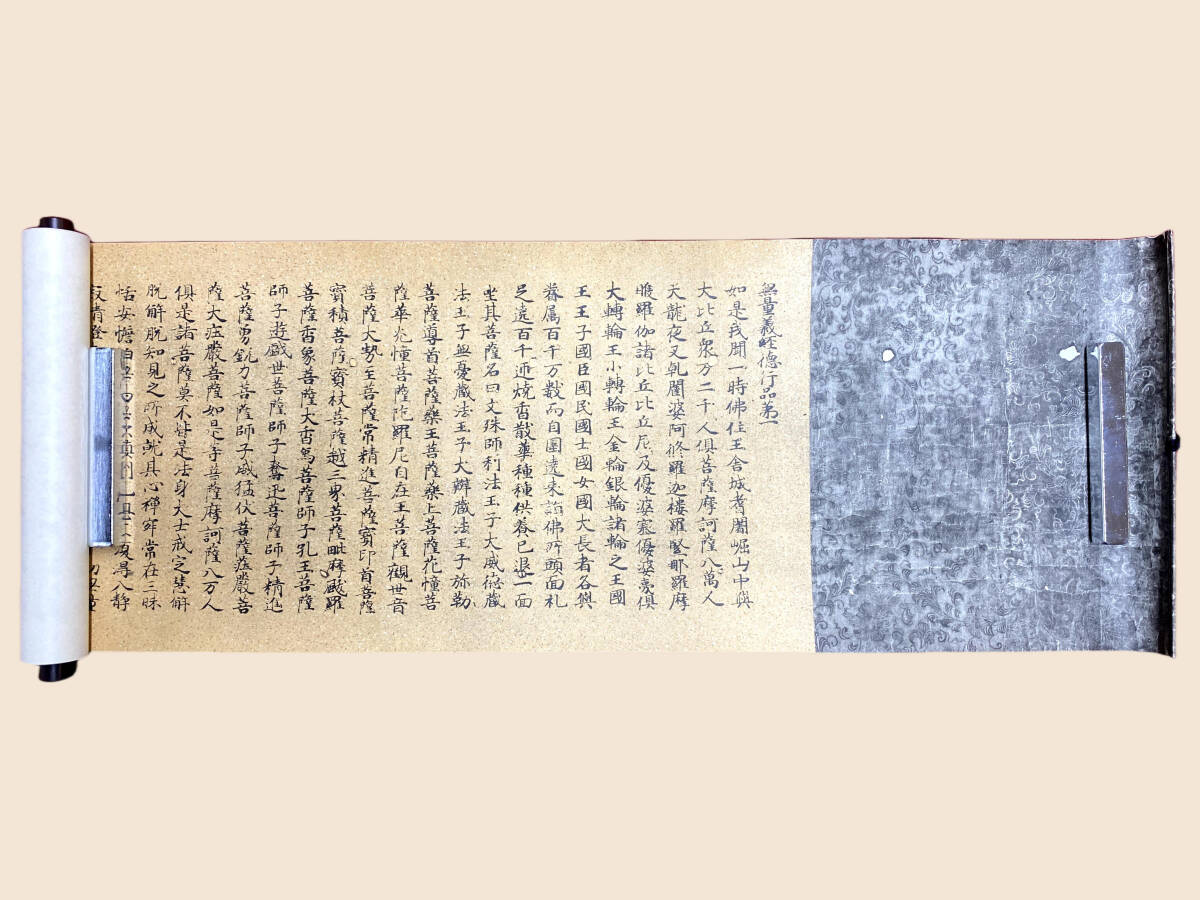 無量義経德行品第一
如是我聞一時佛住王舍城耆闍崛山中與
大比丘衆万二千人俱菩薩摩訶薩八萬人
天龍夜叉乹闥婆阿脩羅迦樓羅緊那羅摩
睺羅伽諸比丘比丘尼及優婆塞優婆夷俱
大轉輪王小轉輪王金輪銀輪諸輪之王國
王王子國臣國民國士國女國大長者各與
眷属百千万數而自圍遶来詣佛所頭面礼
足遶百千迊燒香散華種種供養已退一面
坐其菩薩名曰文殊師利法王子大威德藏
法王子無憂藏法王子大辯藏法王子弥勒
菩薩導首菩薩藥王菩薩藥上菩薩花幢菩
薩華光幢菩薩陁羅尼自在王菩薩觀世音
菩薩大勢至菩薩常精進菩薩寳印首菩薩
寳積菩薩寳杖菩薩越三界菩薩毗摩颰羅
菩薩香象菩薩大香爲菩薩師子孔王菩薩
師子遊戲世菩薩師子奮迅菩薩師子精進
菩薩勇銳力菩薩師子威猛伏菩薩莊嚴菩
薩大莊嚴菩薩如是等菩薩摩訶薩八万人
俱是諸菩薩莫不皆是法身大士戒定慧解
脱解脱知見之所成就其心禅寂常在三昧
恬安憺
清澄